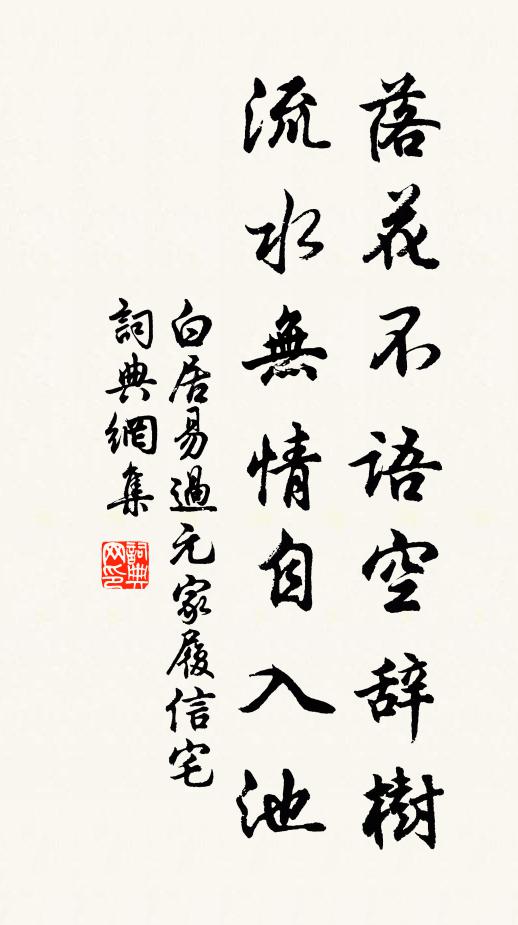 落花不語空辞樹
流水無情自入池
白居易過元家履信宅
詞典網集
詞典网印